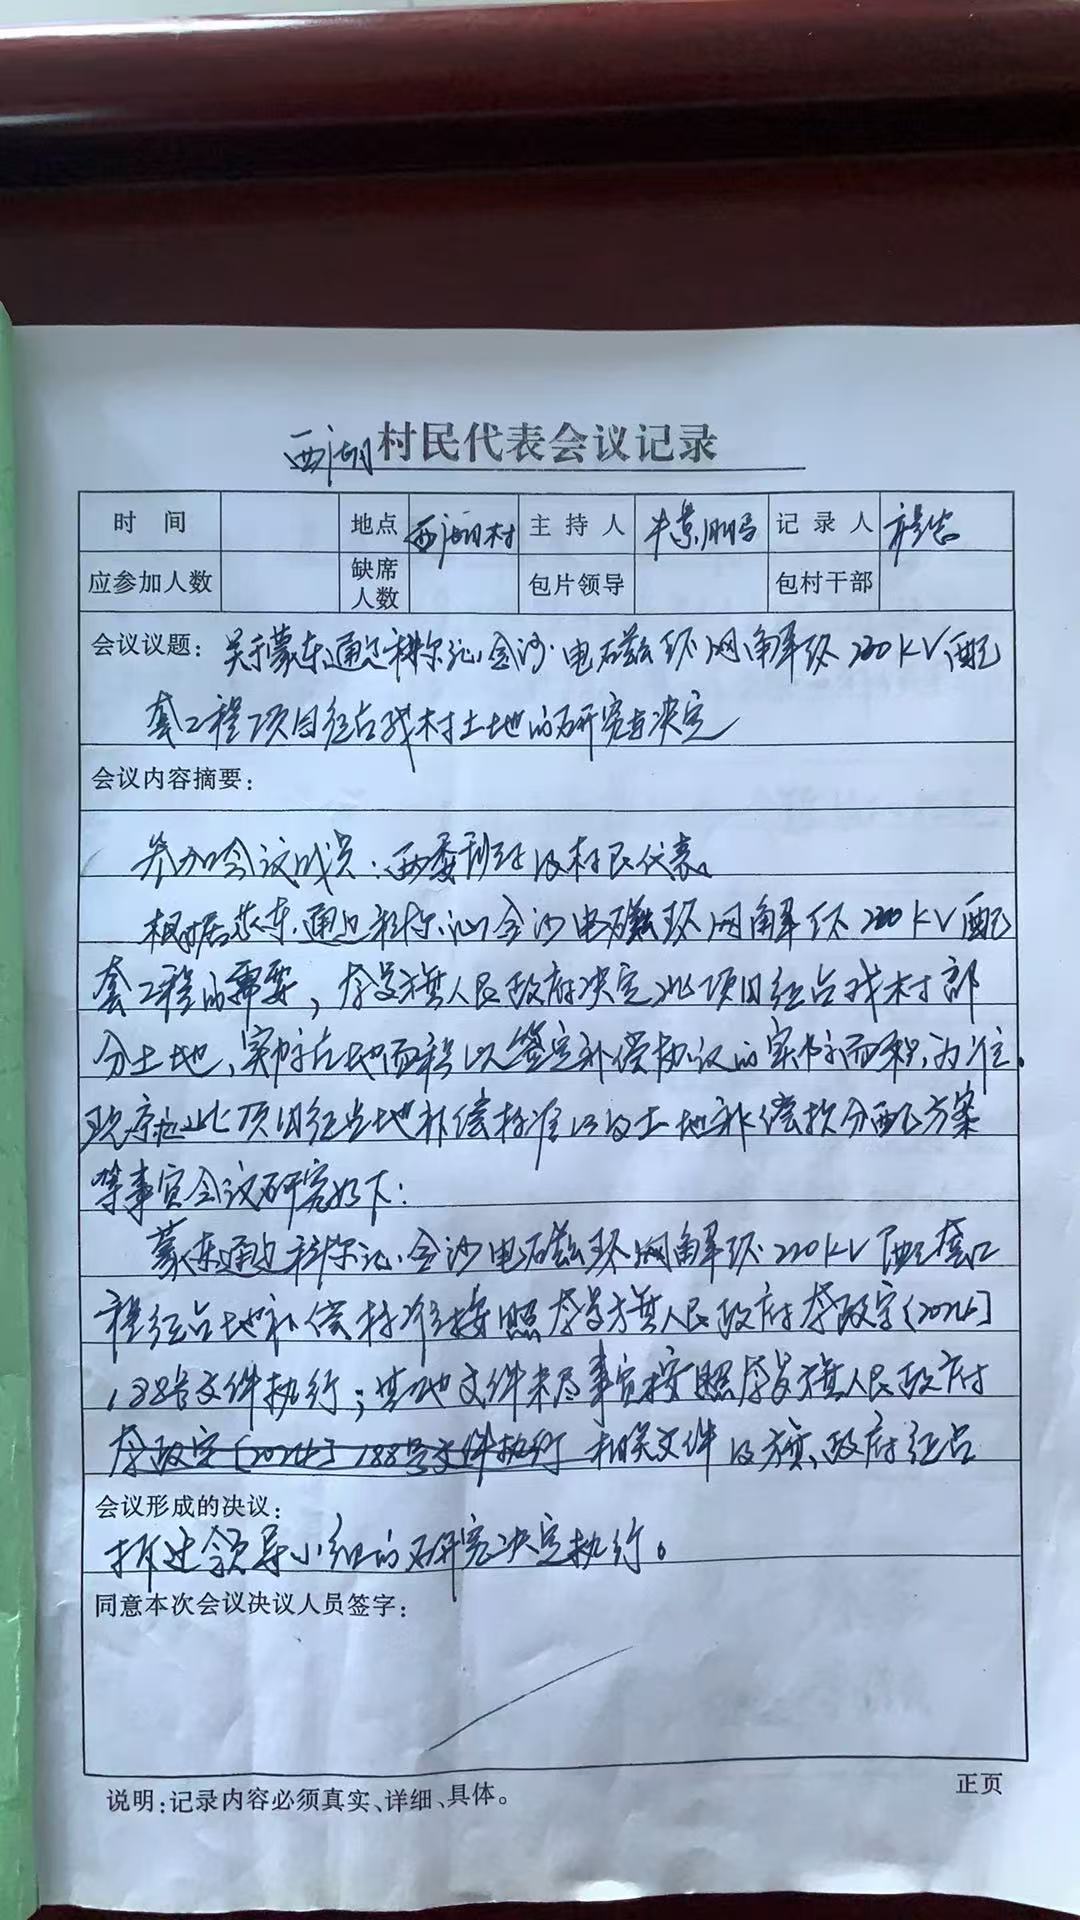 西湖村民代表会议记录
时 间 地点 西湖村 主 持 人 牛景鹏 记 录 人
应参加人数 缺席人数 包片领导 包村干部
会议议题：关于蒙东通辽科尔沁金沙电磁环网解环220KV配
套工程项目征占我村土地的研究与决定
会议内容摘要：
参加会议成员：两委班子及村民代表。
根据蒙东通辽科尔沁金沙电磁环网解环220KV配
套工程的需要，奈曼旗人民政府决定此项目征占我村部
分土地，实际占地面积以签定补偿协议的实际面积为准。
现就此项目征占地补偿标准以及土地补偿款分配方案
等事宜会议研究如下：
蒙东通辽科尔沁金沙电磁环网解环220KV配套工
程征占地补偿标准按照奈曼旗人民政府奈政字[2024]
188号文件执行；其他文件未尽事宜按照奈曼旗人民政府
奈政字[2024]188号文件执行 相关文件及旗政府征占
会议形成的决议：
拆迁领导小组的研究决定执行。
同意本次会议决议人员签字：
说明：记录内容必须真实、详细、具体。
正页